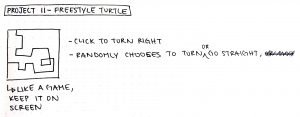 PROJECT 11 - FREESTYLE TURTLE
- CLICK TO TURN RIGHT
- RANDOMLY CHOOSES TO TURN OR GO STRAIGHT,
LIKE A GAME,
KEEP IT ON
SCREEN